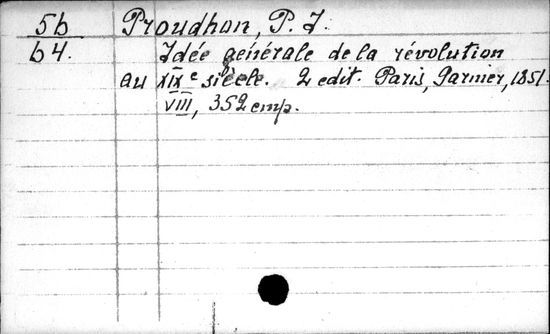 5б Proudhon, P. J.
64. Idée générale de la révolution
au XIXe siècle. 2 edit. Paris, Garnier, 1851.
VIII, 352 стр.